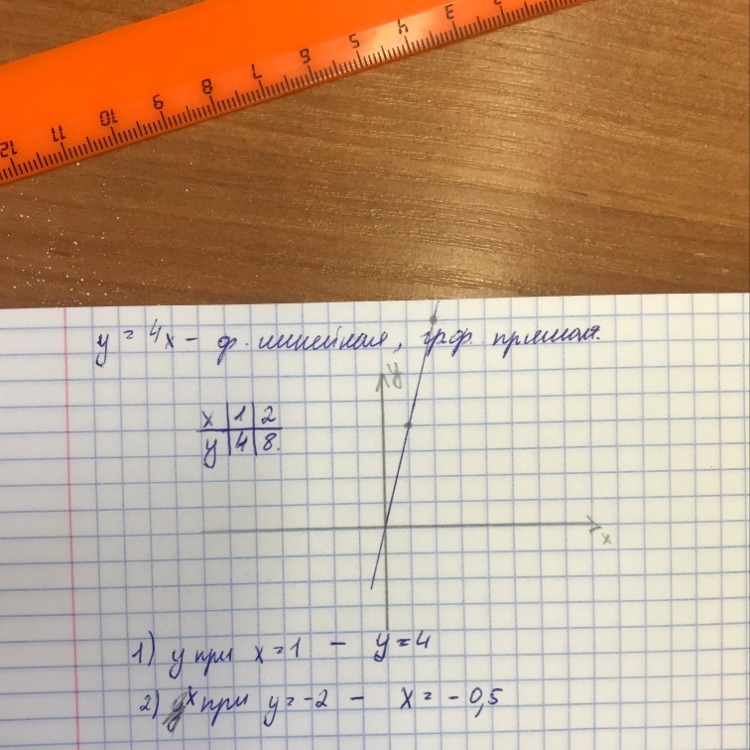 3 4 5 6 7 8 9 10 11 12
y = 4x - ф. линейная, граф. прямая.
y
x 1 2
y 4 8.
x
1) y при x = 1 - y = 4
2) x при y = -2 - x = - 0,5